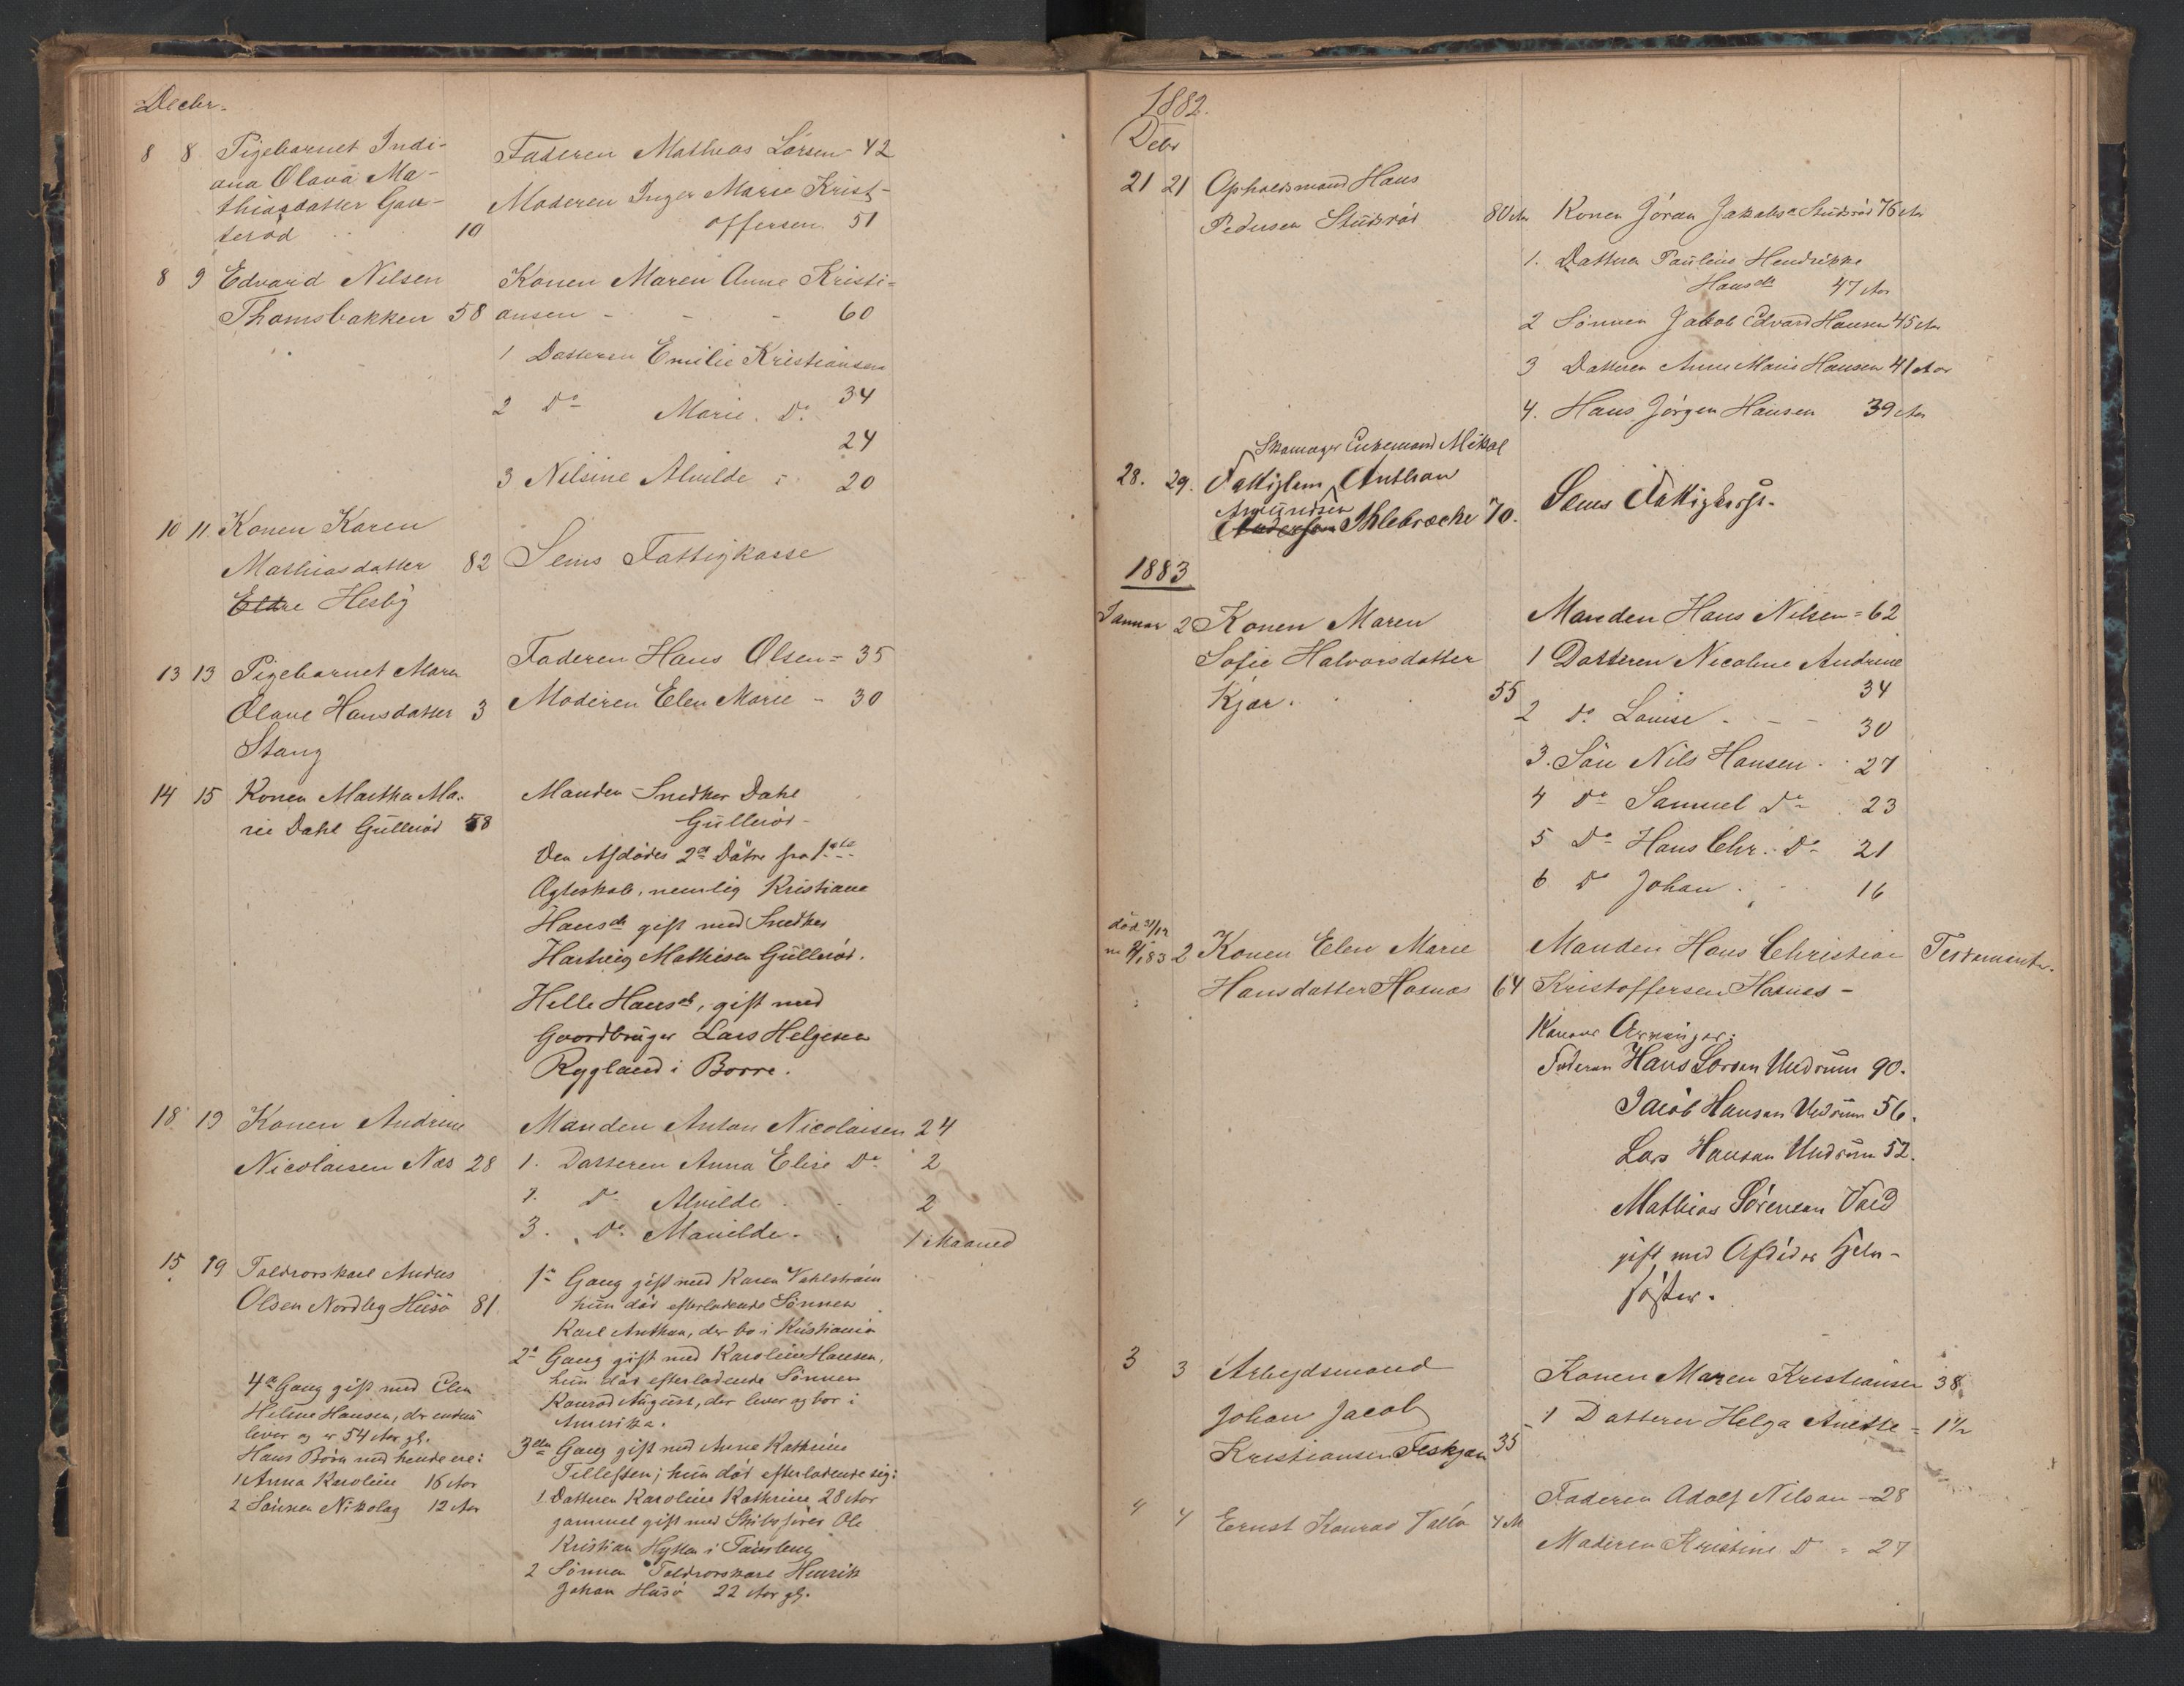 Decbr.
8 8 Pigebarnet Indi-
ana Olava Ma-
thiasdatter Gau-
terød 10
Faderen Mathias Larsen - 42
Moderen Inger Marie Krist-
offersen. 51
8 9 Edvard Nilsen
Thomsbakken 58
Konen Maren Anne Kristi-
ansen - - - 60
1 Datteren Emilie Kristiansen
34
2 Do Marie. Do.
24
3 Nilsine Alvilde 20
10 11 Konen Karen
Mathiasdatter 82
Hesby
Sems Fattigkasse
13 13 Pigebarnet Maren
Olave Hansdatter 3
Stang
Faderen Hans Olsen = 35
Moderen Elen Marie - 30
14 15 Konen Martha Ma-
rie Dahl Gullerød 58
Manden Snedker Dahl
Gullerød -
Den Afdødes 2de Døtre fra 1ste
Ægteskab, nemlig Kristiane
Hansdr gift med Snedker
Hartvig Mathisen Gullerød.
Helle Hansdr, gift med
Gaardbruger Lars Helgesen
Rygland i Borre.
18 19 Konen Andrine
Nicolaisen Næs 28
Manden Anton Nicolaisen 24
1. Datteren Anna Elise Do 2
2. Do Alvilde 2
3. Do. Manilde. 1 Maaned
15 19 Toldrorskarl Andres
Olsen Nordbeg Husø 81
1e Gang gift med Karen Vahlstrøm
hun død efterladende Sønnen
Karl Anthon, der bo i Kristiania
2e Gang gift med Karoline Hansen,
hun død efterladende Sønnen
Konrad August, der lever og bor i
Amerika.
3die Gang gift med Anne Kathrine
Tillefsen; hun død efterladende sig:
1 Datteren Karoline Kathrine 28 Aar
gammel gift med Skibsfører Ole
Kristian Hytten i Tønsberg
2 Sønnen Toldrorskarl Henrik
Johan Husø 22 Aar gl.
4e Gang gift med Elen
Helene Hansen, der endnu
lever og er 54 Aar gl.
Hans Børn med hende ere:
1 Anna Karoline 16 Aar
2 Sønnen Nikolay 12 Aar
1882.
Debr
21 21 Opholdsmand Hans
Pedersen Stubsrød 80 Aar
Konen Jøran Jakobsdr Stubsrød 76 Aar
1. Datteren Pauline Hendrikke
Hansdr 47 Aar
2 Sønnen Jakob Edvard Hansen 45 Aar
3 Datteren Anne Marie Hansen 41 Aar
4. Hans Jørgen Hansen 39 Aar
Skomager Enkemand Mikal
28. 29. Fattiglem Anthon
Amundsen
Andersen Klebrocke 70.
Sems Fattigkasse.
1883
Januar 2 Konen Maren
Sofie Halvorsdatter
Kjær. 55
Manden Hans Nilsen = 62
1 Datteren Nicoline Andrine
34
2 Do. Louise - - - 30
3. Søn Nils Hansen. 27
4 Do Samuel Do 23
5 Do Hans Chr. Do 21
6 Do Johan 16
død 31/12
83 2 Konen Elen Marie
Hansdatter Hasnæs 64
Manden Hans Christian
Kristoffersen Hasnæs -
Testament.
Konens Arvinger:
Faderen Hans Larsen Undrum 90.
Jacob Hansen Undrum 56.
Lars Hansen Undrum 52.
Mathias Sørensen Vold
gift med Afdødes Hel-
søster.
3 3 Arbejdsmand
Johan Jacob
Kristiansen Feskjær 35
Konen Maren Kristiansen 38
1 Datteren Helga Anette = 1½
4 4 Ernst Konrad Vallø 4 M
Faderen Adolf Nilsen - 28
Moderen Kristine Do = 27